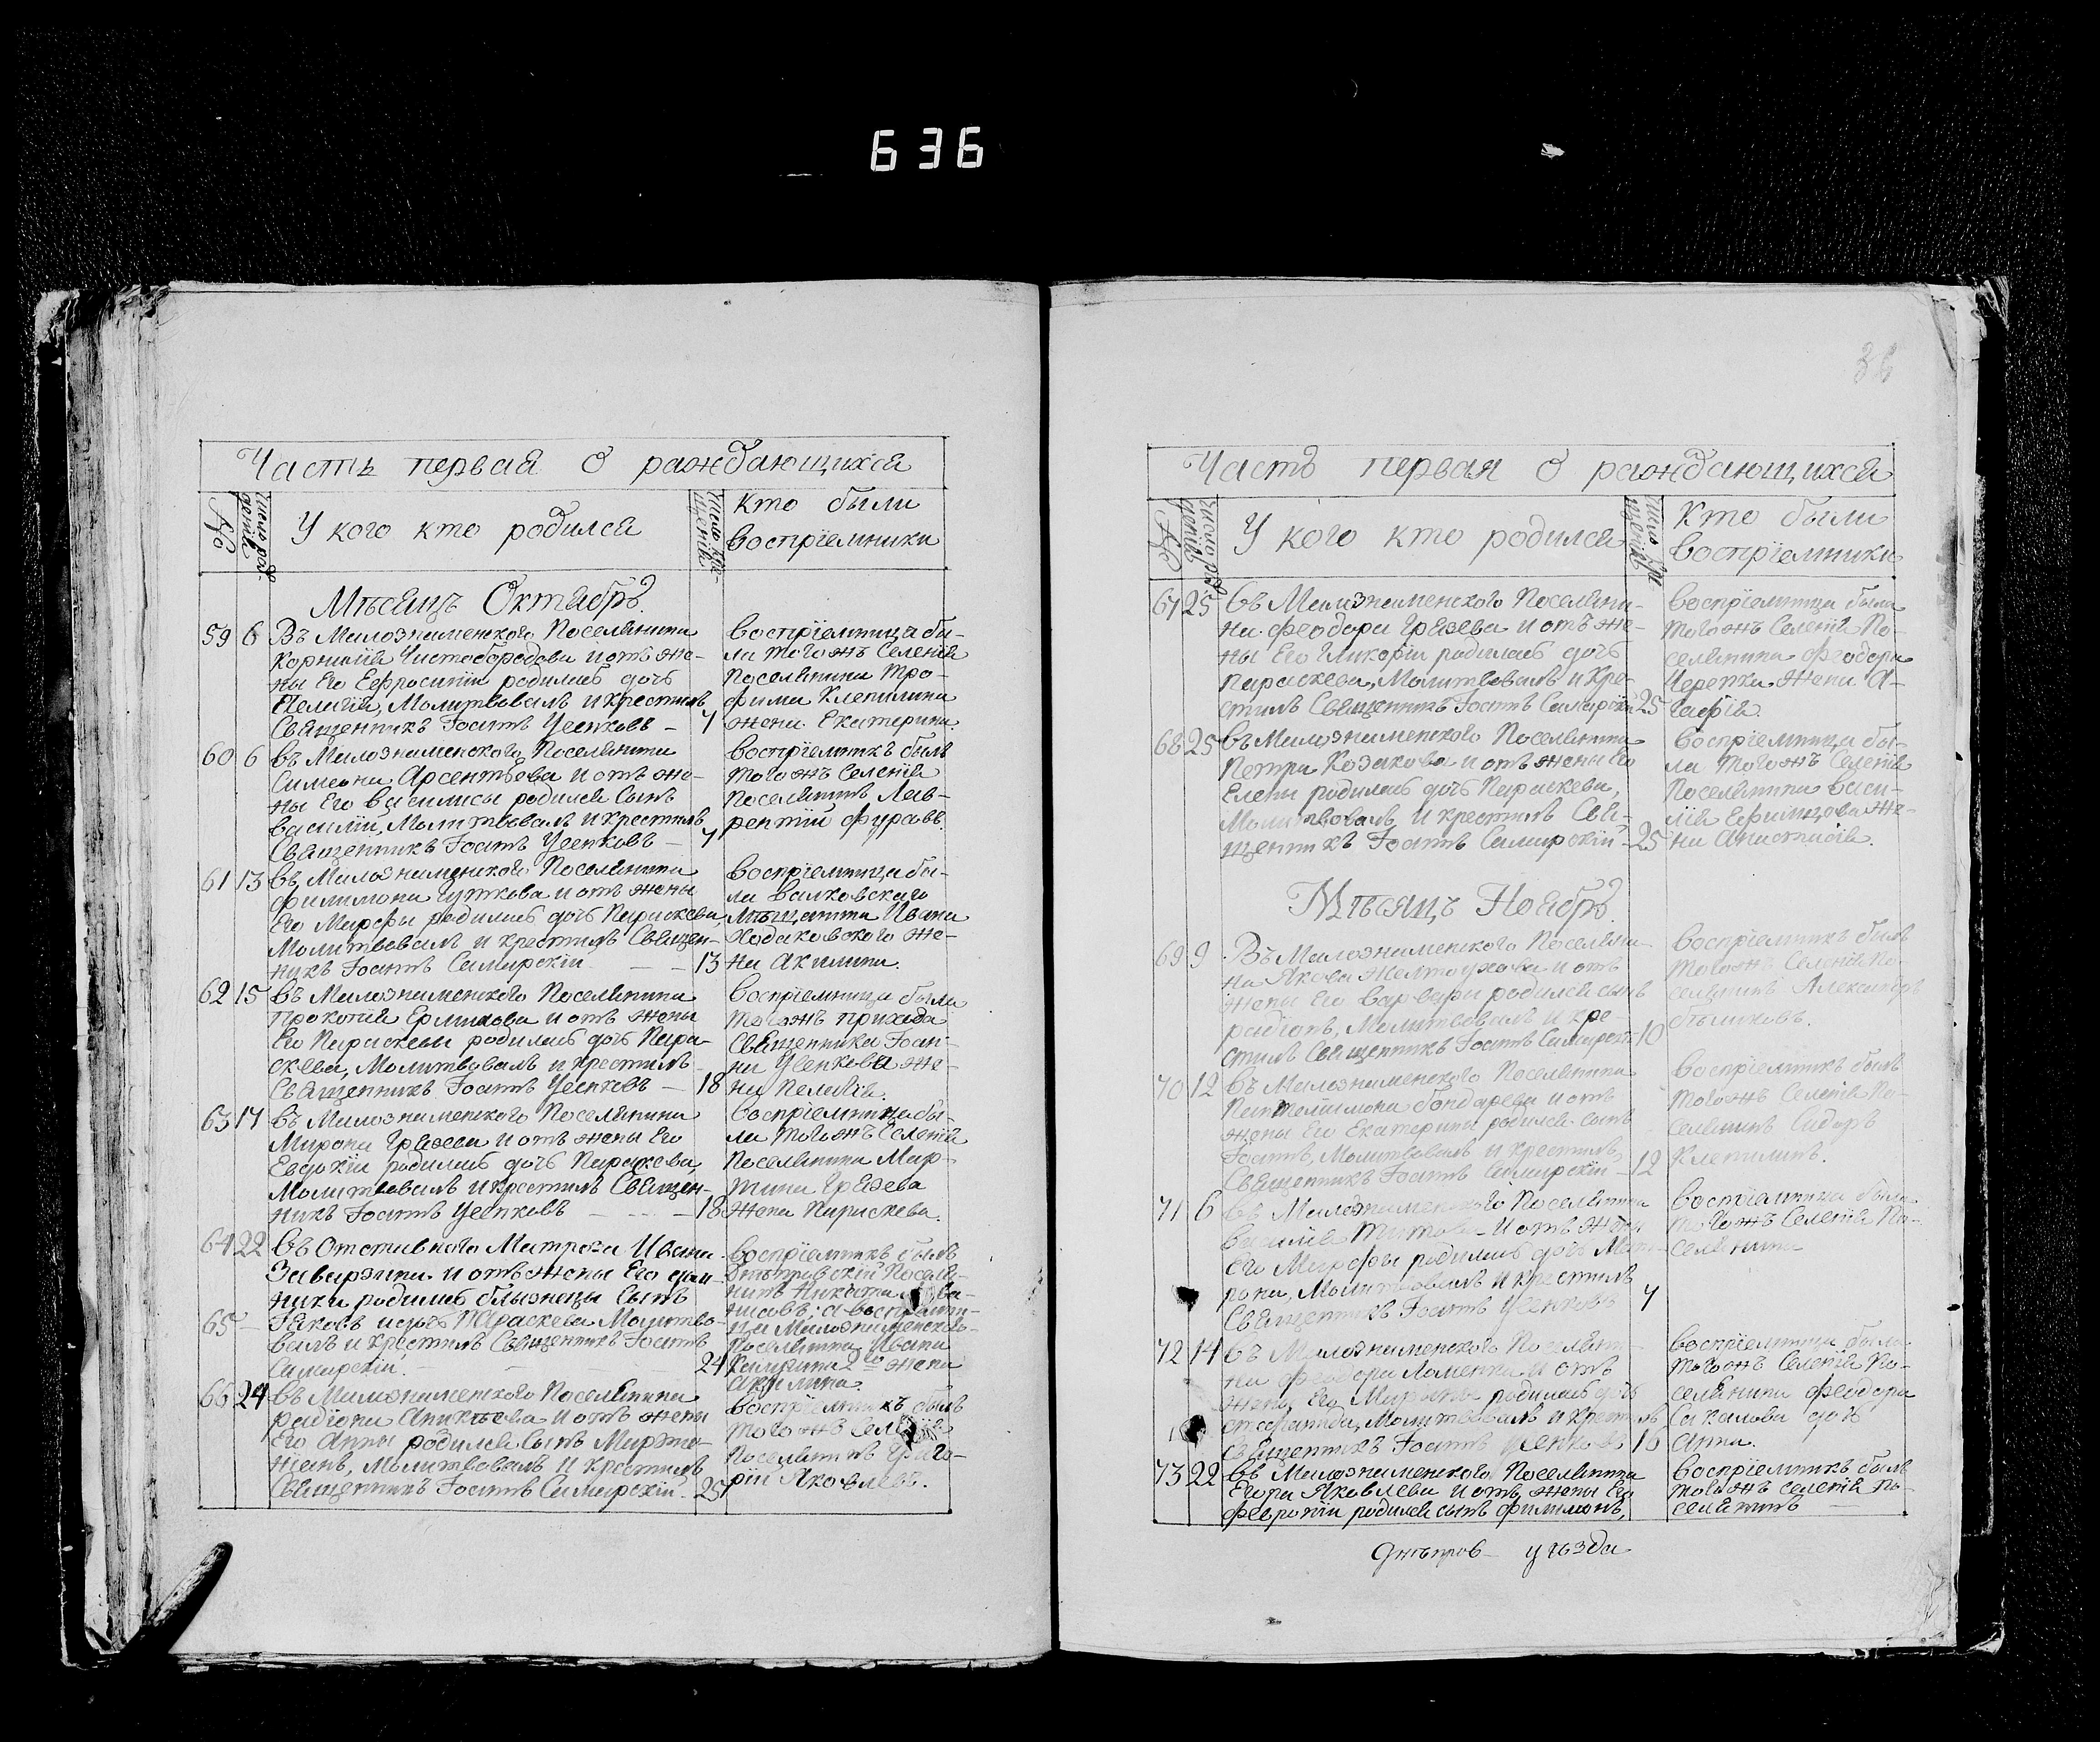 636
Часть первая о раждающихся
№
число рожденій
У кого кто родился
число крещеній
кто были
воспріемники
Мѣсяцъ Октябрь.
59 6 Въ Милознаменского Поселянина
Корнилія Чистобородова и отъ же-
ны Его Ефросиніи родилась дочь
Пелагія, Молитвовалъ и крестилъ
Священникъ Іоаннъ Усенковъ – 7
воспріемница бы-
ла тогожъ Селенія
Поселянина Тро-
фима Клепилина
жена Екатерина.
60 6 въ Милознаменского Поселянина
Симеона Арсентьева и отъ же-
ны Его василисы родился Сынъ
василій, Молитвовалъ и крестилъ
Священникъ Іоаннъ Усенковъ – 7
воспріемникъ былъ
тогожъ Селенія
Поселянинъ Лав-
рентій Фурсовъ.
61 13 въ Милознаменского Поселянина
филимона Гуткова и отъ жены
Его Марфы родилась дочь Параскева,
Молитвовалъ и крестилъ Священ-
никъ Іоаннъ Самарскій – – 13
воспріемница бы-
ла валковского
Мѣщанина Ивана
Ходаковского же-
на Акилина.
62 15 въ Милознаменского Поселянина
Прокопія Ермакова и отъ жены
Его Параскевы родилась дочь Пара-
скева, Молитвовалъ и крестилъ
Священникъ Іоаннъ Усенковъ – 18
воспріемница была
тогожъ прихода
Священника Іоан-
на Усенкова же-
на Пелагія.
63 17 въ Милознаменского Поселянина
Мирона Грязева и отъ жены Его
Евдокіи родилась дочь Параскева,
Молитвовалъ и крестилъ Священ-
никъ Іоаннъ Усенковъ – – – 18
воспріемница бы-
ла тогожъ Селенія
Поселянина Мар-
тина Грязева
жена Параскева.
64 22 въ Отставного Матроза Ивана
Заварзина и отъ жены Его
родилась близнецы Сынъ
65 – Іаковъ и дочь Параскева Молитво-
валъ и крестилъ Священникъ Іоаннъ
Самарскій. – – – 24
воспріемникъ былъ
Днѣпровскій Поселя-
нинъ Никита
а воспріемни-
ца Милознаменско-
Поселянина Ивана
2го жена
Акилина.
66 24 въ Милознаменского Поселянина
радіона Аникѣева и отъ жены
Его Анны родился Сынъ Марти-
женъ, Молитвовалъ и крестилъ
Священникъ Іоаннъ Самарскій. 25
воспріемникъ былъ
тогожъ Селенія
Поселянинъ Григо-
рій Яковлевъ.
36
Часть первая о раждающихся
№
число рожденій
У кого кто родился
число крещеній
Кто были
воспріемники
67 25 въ Милознаменского Поселяни-
на феодора Грязева и отъ же-
ны Его Гликеріи родилась дочь
Параскева, Молитвовалъ и кре-
стилъ Священникъ Іоаннъ Самарскій 25
воспріемница была
тогожъ Селенія По-
селянина феодора
Черепка жена А-
гафія.
68 25 въ Милознаменского Поселянина
Петра Козакова и отъ жены Его
Елены родилась дочь Параскева,
Молитвовалъ и крестилъ Свя-
щенникъ Іоаннъ Самарскій – 25
воспріемница бы-
ла тогожъ Селенія
Поселянина васи-
лія Ефимцова же-
на Анастасія.
Мѣсяцъ Ноябрь.
69 9 Въ Милознаменского Поселяни-
на Якова Желтоухова и отъ
жены Его варвары родился сынъ
радіонъ, Молитвовалъ и кре-
стилъ Священникъ Іоаннъ Самарскі 10
воспріемникъ былъ
тогожъ Селенія По-
селянинъ Александръ
бѣликовъ.
70 12 въ Милознаменского Поселянина
Пантелиимона бондарева и отъ
жены Его Екатерины родился сынъ
Іоаннъ, Молитвовалъ и крестилъ
Священникъ Іоаннъ Самарскій – 12
воспріемникъ былъ
тогожъ Селенія По-
селянинъ Сидоръ
Клепилинъ.
71 6 въ Милознаменского Поселянина
василія Титова и отъ жены
Его Марфы родилась дочь Мат-
рона, Молитвовалъ и крестилъ
Священникъ Іоаннъ Усенковъ 7
воспріемница была
тогожъ Селенія По-
селянина
72 14 въ Милознаменского Поселяни-
на феодора Ломенка и отъ
жены Его родилась дочь
Молитвовалъ и крестилъ
Священникъ Іоаннъ Усенковъ 16
воспріемница была
тогожъ Селенія По-
селянина феодора
Сакалова дочь
Анна.
73 22 въ Милознаменского Поселянина
Егора Яковлева и отъ жены Его
февроніи родился сынъ филимонъ,
воспріемникъ былъ
тогожъ селенія По-
селянинъ –
Днѣпров– уѣзда